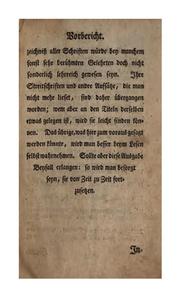 Vorbericht.
zeichniß aller Schriften würde bey manchem
sonst sehr berühmten Gelehrten doch nicht
sonderlich lehrreich gewesen seyn. Ihre
Streitschriften und andre Aufsätze, die man
nicht mehr lieset, sind daher übergangen
worden; wem aber an den Titeln derselben
etwas gelegen ist, wird sie leicht finden kön-
nen. Das übrige, was hier zum voraus gesagt
werden könnte, wird man besser beym Lesen
selbst wahrnehmen. Sollte aber diese Ausgabe
Beyfall erlangen: so wird man besorgt
seyn, sie von Zeit zu Zeit fort-
zusetzen.
In-